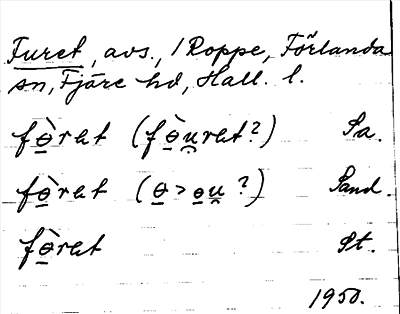 Furet, avs., i Roppe, Förlanda
sn, Fjäre hd, Hall. l.
fɵ̀rət (fɵ̀u̯rət?) Sa.
fɵ̀rət (ɵ > ɵu̯ ?) Sand.
fɵ̀rət St.
1950.